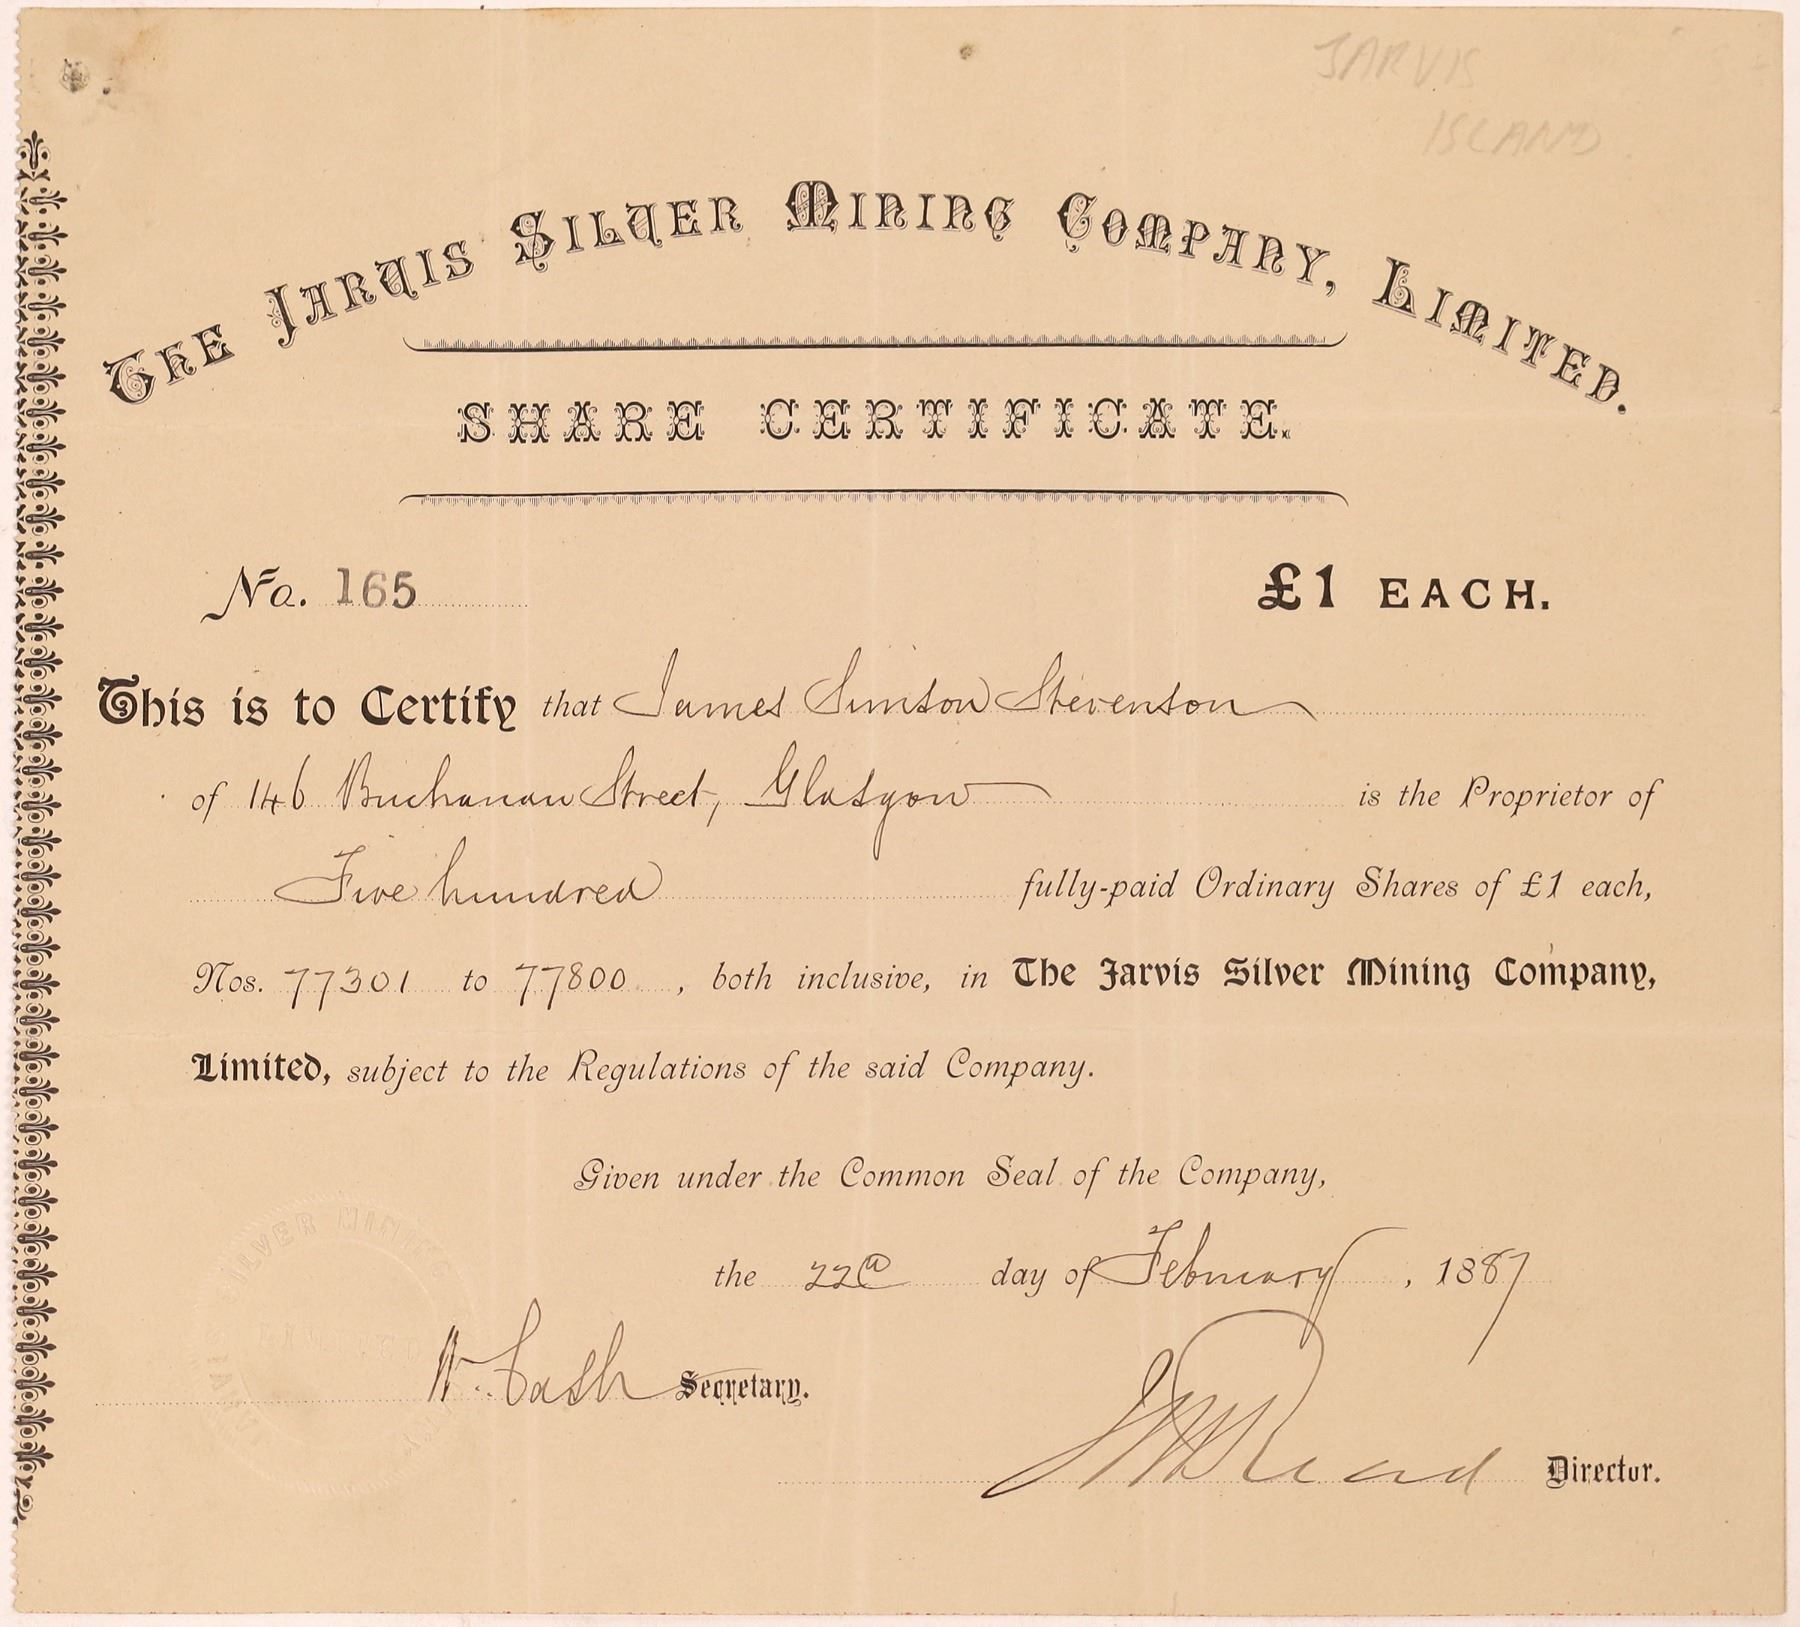 JARVIS
ISLAND
THE JARVIS SILVER MINING COMPANY, LIMITED.
SHARE CERTIFICATE.
No. 165
£1 EACH.
This is to Certify that James Simson Stevenson
of 146 Buchanan Street, Glasgow is the Proprietor of
Five hundred fully-paid Ordinary Shares of £1 each,
Nos. 77301 to 77800, both inclusive, in The Jarvis Silver Mining Company,
Limited, subject to the Regulations of the said Company.
Given under the Common Seal of the Company,
the 22nd day of February, 1887
SILVER MINING
LIMITED
W. Cash Secretary.
Read Director.